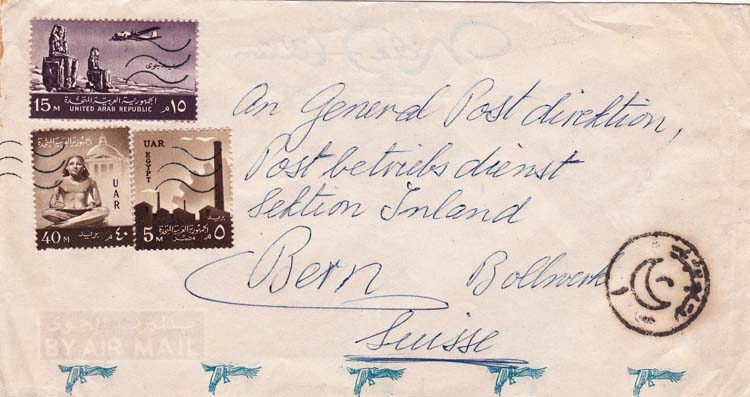 بريد جوى
15 M الجمهورية العربية المتحدة ١٥ م
UNITED ARAB REPUBLIC
الجمهورية العربية المتحدة
UAR
40 M بريد ٤٠ م
UAR
EGYPT
بريد
الجمهورية العربية المتحدة
5 M مصر ٥ م
An General Post direktion,
Post betriebs dienst
Sektion Inland
Bern Bollwerk
Suisse
BY AIR MAIL